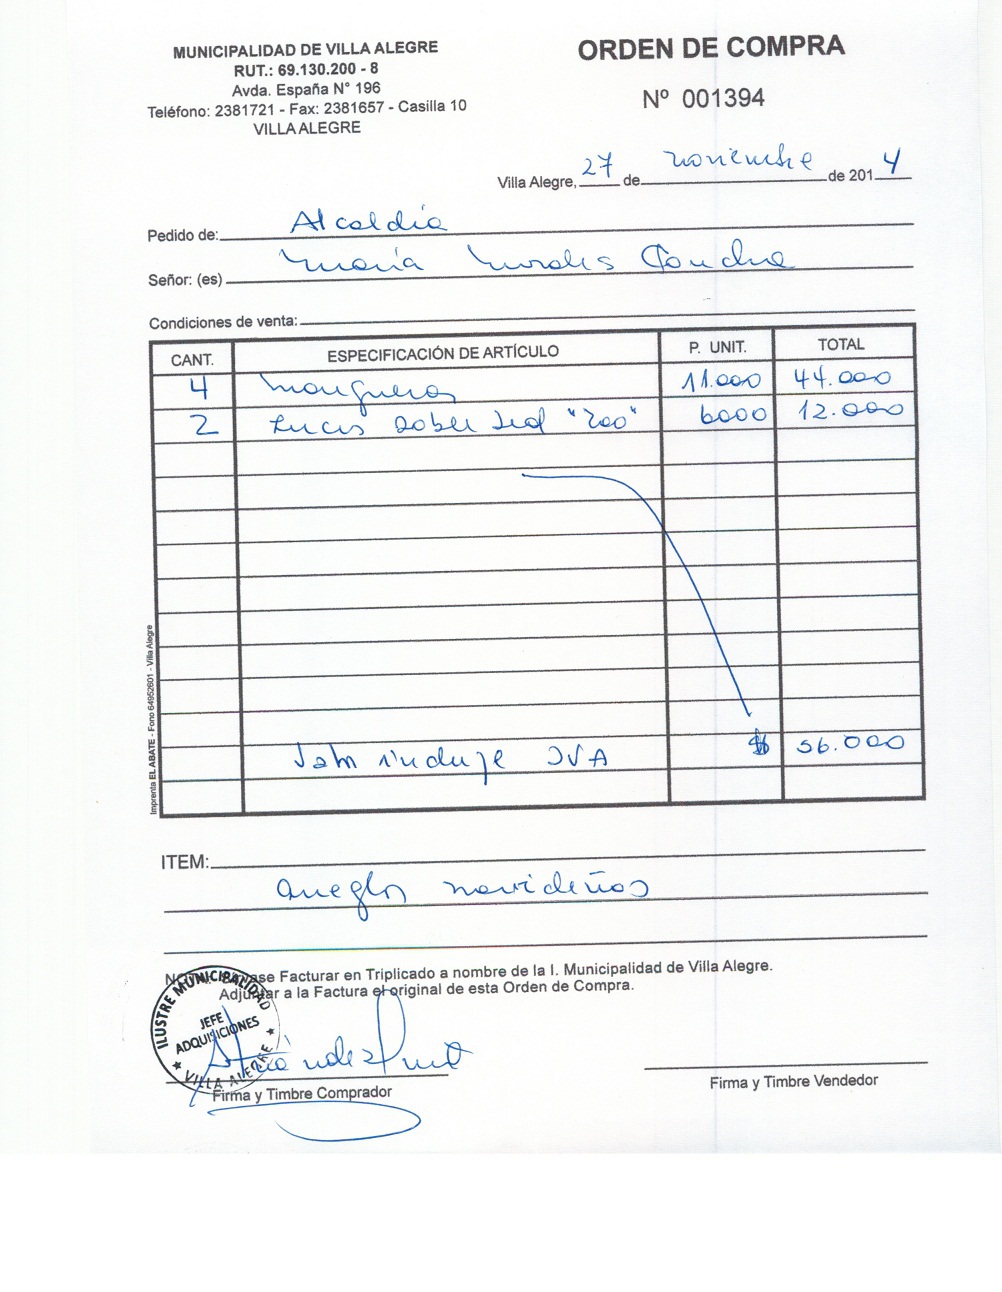 MUNICIPALIDAD DE VILLA ALEGRE
RUT.: 69.130.200 - 8
Avda. España N° 196
Teléfono: 2381721 - Fax: 2381657 - Casilla 10
VILLA ALEGRE
ORDEN DE COMPRA
Nº 001394
Villa Alegre, 27 de noviembre de 2014
Pedido de: Alcaldía
Señor: (es) María Morales
Condiciones de venta:
CANT. ESPECIFICACIÓN DE ARTÍCULO P. UNIT. TOTAL
4 Mangueras 11.000 44.000
2 Luces doble "200" 6000 12.000
incluye IVA $ 56.000
Imprenta EL ABATE - Fono 64952601 - Villa Alegre
ITEM:
arreglos navideños
Facturar en Triplicado a nombre de la I. Municipalidad de Villa Alegre.
Adjuntar a la Factura el original de esta Orden de Compra.
ILUSTRE MUNICIPALIDAD
JEFE
ADQUISICIONES
VILLA ALEGRE
Firma y Timbre Comprador
Firma y Timbre Vendedor